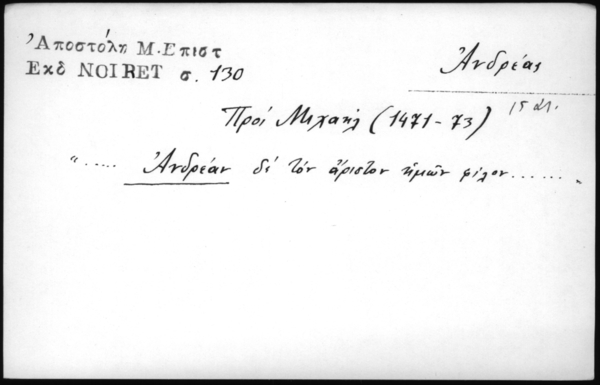 Ἀποστόλη Μ. Επιστ
Εκδ NOIRET σ. 130
Ἀνδρέας
15 αι.
Πρός Μιχαήλ (1471-73)
"..... Ἀνδρέαν δέ τόν ἄριστον ἡμῶν φίλον ...... "